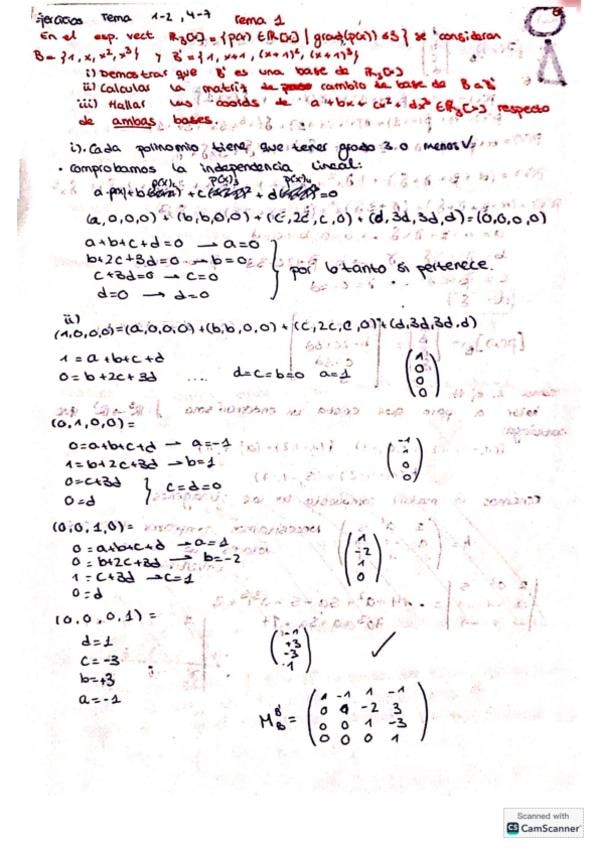 ejercicios Tema 1-2, 4-7 Tema 1
En el esp. vect R₃[x] = {p(x) ∈ R[x] | grad(p(x)) ≤ 3} se consideran
B = {1, x, x², x³} y B' = {1, x+1, (x+1)², (x+1)³}
i) Demostrar que B' es una base de R₃[x]
ii) Calcular la matriz de cambio de base de B a B'
iii) Hallar las coords de a+bx+cx²+dx³ ∈ R₃[x] respecto
de ambas bases.
i). Cada polinomio tiene que tener grado 3 o menos ✓.
· comprobamos la independencia lineal:
(a,0,0,0) + (b,b,0,0) + (c,2c,c,0) + (d,3d,3d,d) = (0,0,0,0)
a+b+c+d=0 → a=0
b+2c+3d=0 → b=0
c+3d=0 → c=0
d=0 → d=0
} por lo tanto si pertenece.
ii)
(1,0,0,0) = (a,0,0,0) + (b,b,0,0) + (c,2c,c,0) + (d,3d,3d,d)
1 = a+b+c+d
0 = b+2c+3d .... d=c=b=0 a=1 (1 0 0 0)
(0,1,0,0) =
0=a+b+c+d → a=-1
1=b+2c+3d → b=1 (-1 1 0 0)
0=c+3d
0=d
} c=d=0
(0,0,1,0) =
0 = a+b+c+d → a=1
0 = b+2c+3d → b=-2 (1 -2 1 0)
1 = c+3d → c=1
0=d
(0,0,0,1) =
d=1
c=-3 (-1 +3 -3 1) ✓
b=+3
a=-1
M B' B = (1 -1 1 -1
0 1 -2 3
0 0 1 -3
0 0 0 1)
Scanned with
CS CamScanner